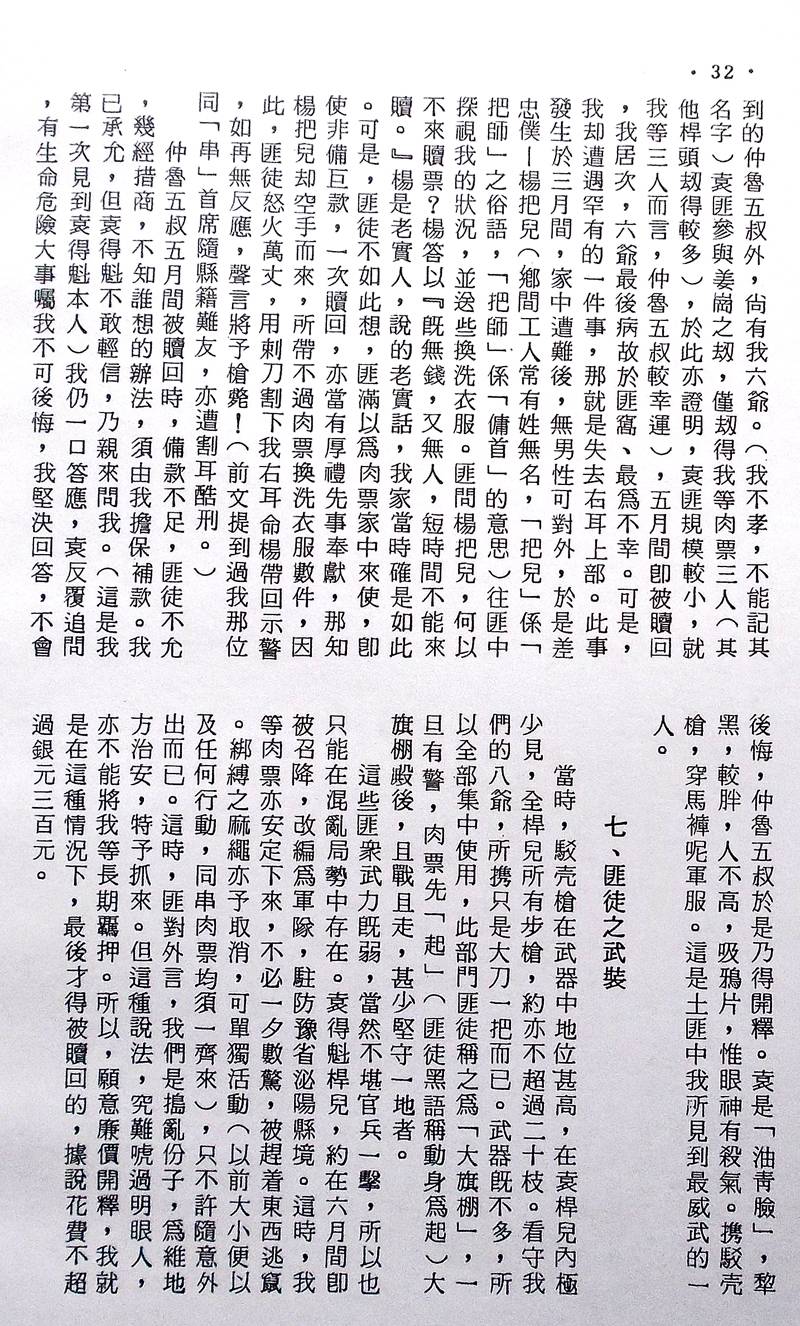 ・32・
到的仲魯五叔外，尙有我六爺。（我不孝，不能記其
名字）袁匪參與姜崗之刼，僅刼得我等肉票三人（其
他桿頭刼得較多），於此亦證明，袁匪規模較小，就
我等三人而言，仲魯五叔較幸運），五月間卽被贖回
，我居次，六爺最後病故於匪窩、最爲不幸。可是，
我却遭遇罕有的一件事，那就是失去右耳上部。此事
發生於三月間，家中遭難後，無男性可對外，於是差
忠僕—楊把兒（鄉間工人常有姓無名，「把兒」係「
把師」之俗語，「把師」係「傭首」的意思）往匪中
探視我的狀況，並送些換洗衣服。匪問楊把兒，何以
不來贖票？楊答以『旣無錢，又無人，短時間不能來
贖。』楊是老實人，說的老實話，我家當時確是如此
。可是，匪徒不如此想，匪滿以爲肉票家中來使，卽
使非備巨款，一次贖回，亦當有厚禮先事奉獻，那知
楊把兒却空手而來，所帶不過肉票換洗衣服數件，因
此，匪徒怒火萬丈，用刺刀割下我右耳命楊帶回示警
，如再無反應，聲言將予槍斃！（前文提到過我那位
同「串」首席隨縣籍難友，亦遭割耳酷刑。）
仲魯五叔五月間被贖回時，備款不足，匪徒不允
，幾經措商，不知誰想的辦法，須由我擔保補款。我
已承允，但袁得魁不敢輕信，乃親來問我。（這是我
第一次見到袁得魁本人）我仍一口答應，袁反覆追問
，有生命危險大事囑我不可後悔，我堅決回答，不會
後悔，仲魯五叔於是乃得開釋。袁是「油靑臉」，黎
黑，較胖，人不高，吸鴉片，惟眼神有殺氣。携駁壳
槍，穿馬褲呢軍服。這是土匪中我所見到最威武的一
人。
七、匪徒之武裝
當時，駁壳槍在武器中地位甚高，在袁桿兒內極
少見，全桿兒所有步槍，約亦不超過二十枝。看守我
們的八爺，所携只是大刀一把而已。武器旣不多，所
以全部集中使用，此部門匪徒稱之爲「大旗棚」，一
旦有警，肉票先「起」（匪徒黑語稱動身爲起）大
旗棚殿後，且戰且走，甚少堅守一地者。
這些匪衆武力旣弱，當然不堪官兵一擊，所以也
只能在混亂局勢中存在。袁得魁桿兒，約在六月間卽
被召降，改編爲軍隊，駐防豫省泌陽縣境。這時，我
等肉票亦安定下來，不必一夕數驚，被趕着東西逃竄
。綁縛之麻繩亦予取消，可單獨活動（以前大小便以
及任何行動，同串肉票均須一齊來），只不許隨意外
出而已。這時，匪對外言，我們是搗亂份子，爲維地
方治安，特予抓來。但這種說法，究難唬過明眼人，
亦不能將我等長期羈押。所以，願意廉價開釋，我就
是在這種情況下，最後才得被贖回的，據說花費不超
過銀元三百元。